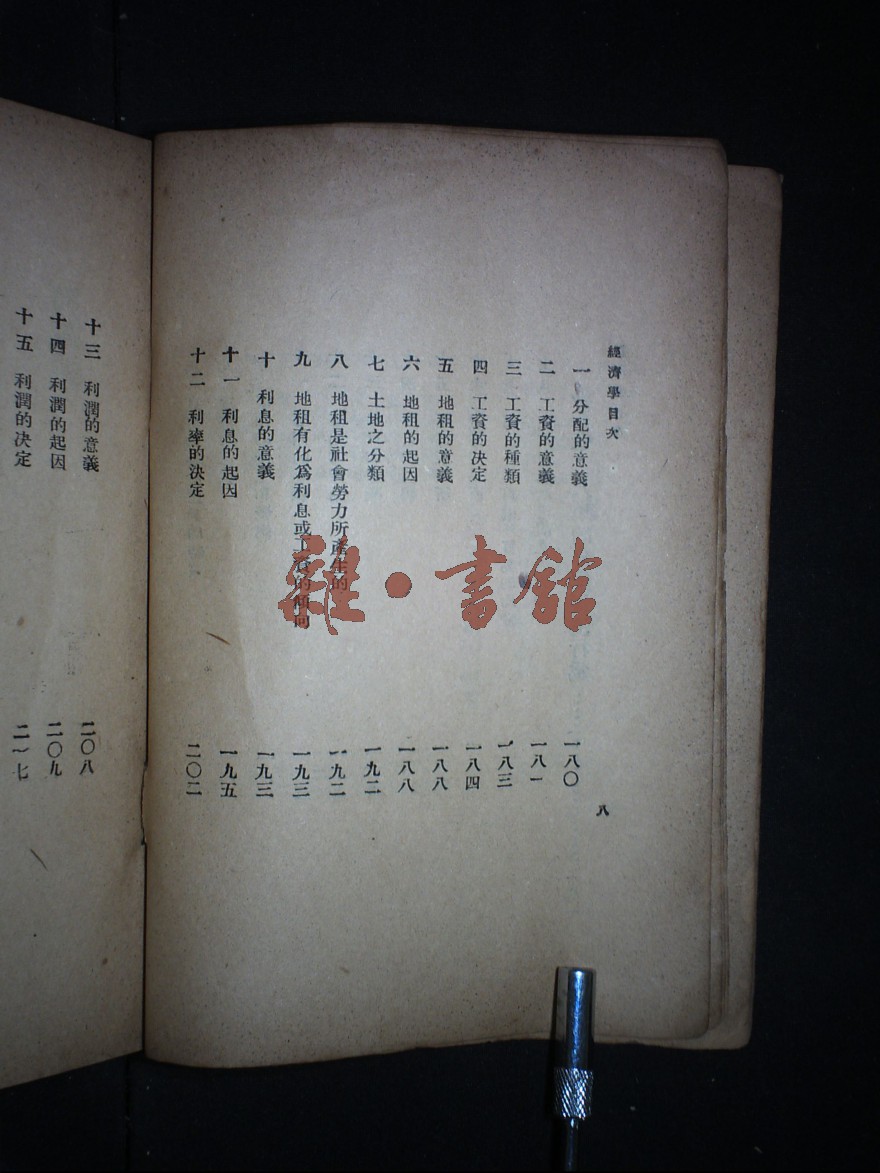 經濟學目次
一 分配的意義 一八〇
二 工資的意義 一八一
三 工資的種類 一八三
四 工資的決定 一八四
五 地租的意義 一八八
六 地租的起因 一八八
七 土地之分類 一九二
八 地租是社會勞力所產生的 一九二
九 地租有化爲利息或工資的傾向 一九三
十 利息的意義 一九三
十一 利息的起因 一九五
十二 利率的決定 二〇二
八
十三 利潤的意義 二〇八
十四 利潤的起因 二〇九
十五 利潤的決定 二一七
雜·書館